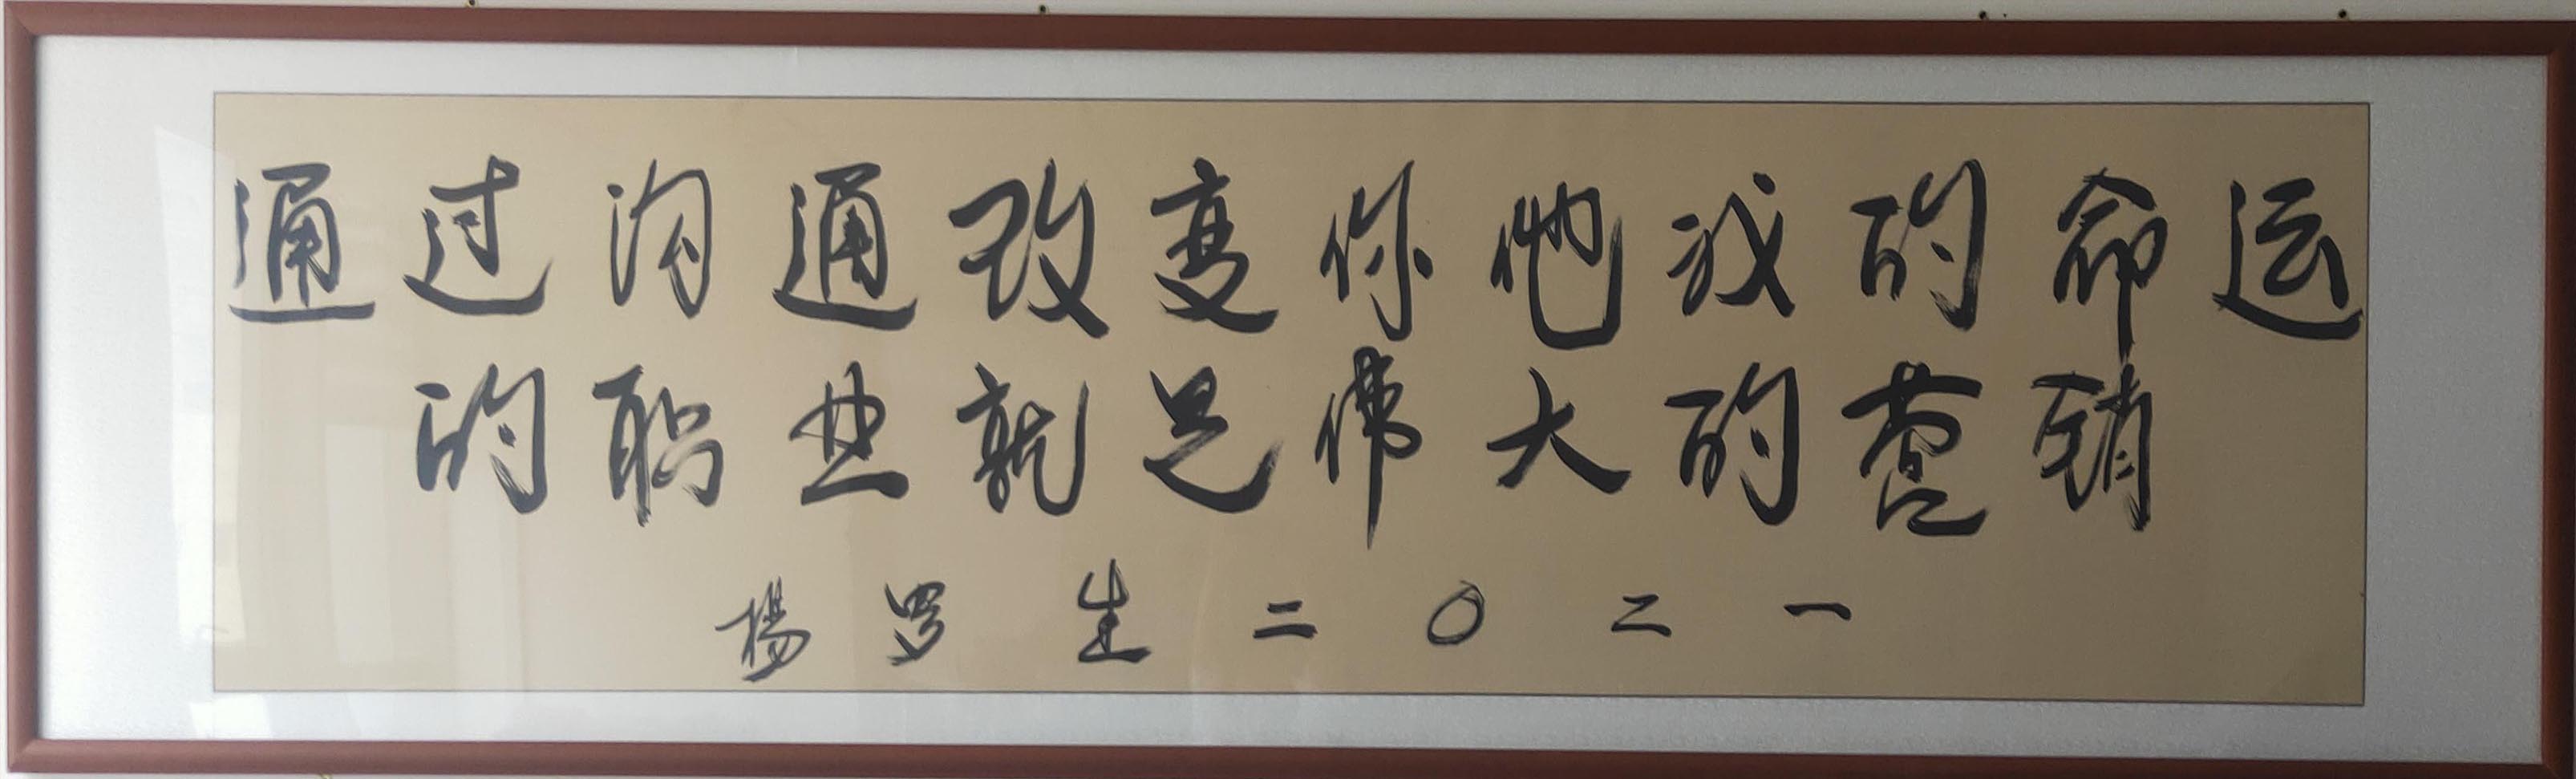 通过沟通改变你他我的命运
的职业就是伟大的营销
楊罗生二〇二一